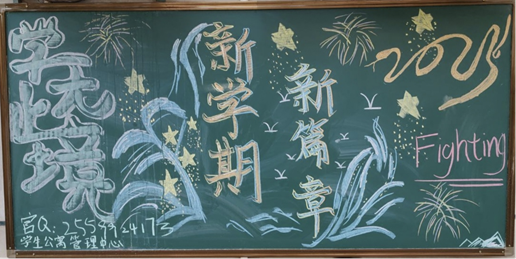 学无止境
新学期
新篇章
2025
Fighting
学生公寓管理中心